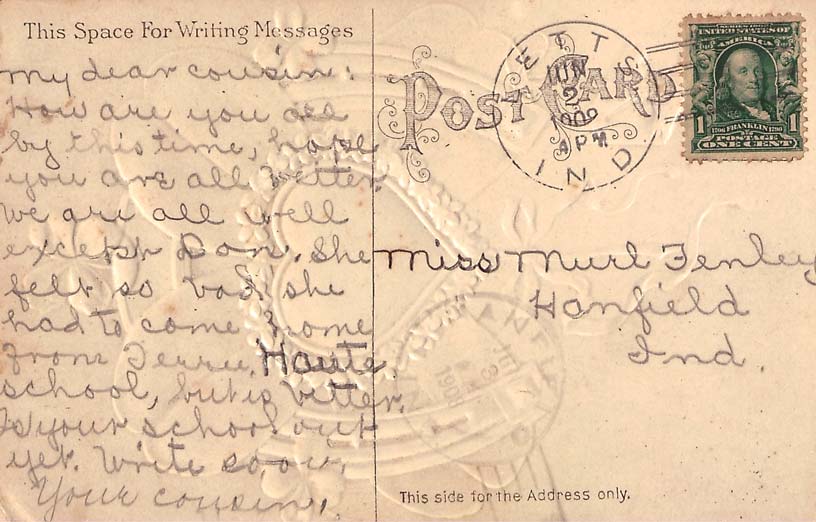 This Space For Writing Messages
My dear cousin:
How are you all
by this time, hope
you are all better.
We are all well
except Don. She
felt so bad she
had to come home
from Terre Haute
school, but is better.
Is your school out
yet. Write soon,
Your cousin,
POST CARD
ETT S
JUN
2
1909
4 PM
IND
SERIES 1902
UNITED STATES OF
AMERICA
1 1706 FRANKLIN 1790 1
POSTAGE
ONE CENT
Miss Murl Fenley
Hanfield
Ind.
This side for the Address only.